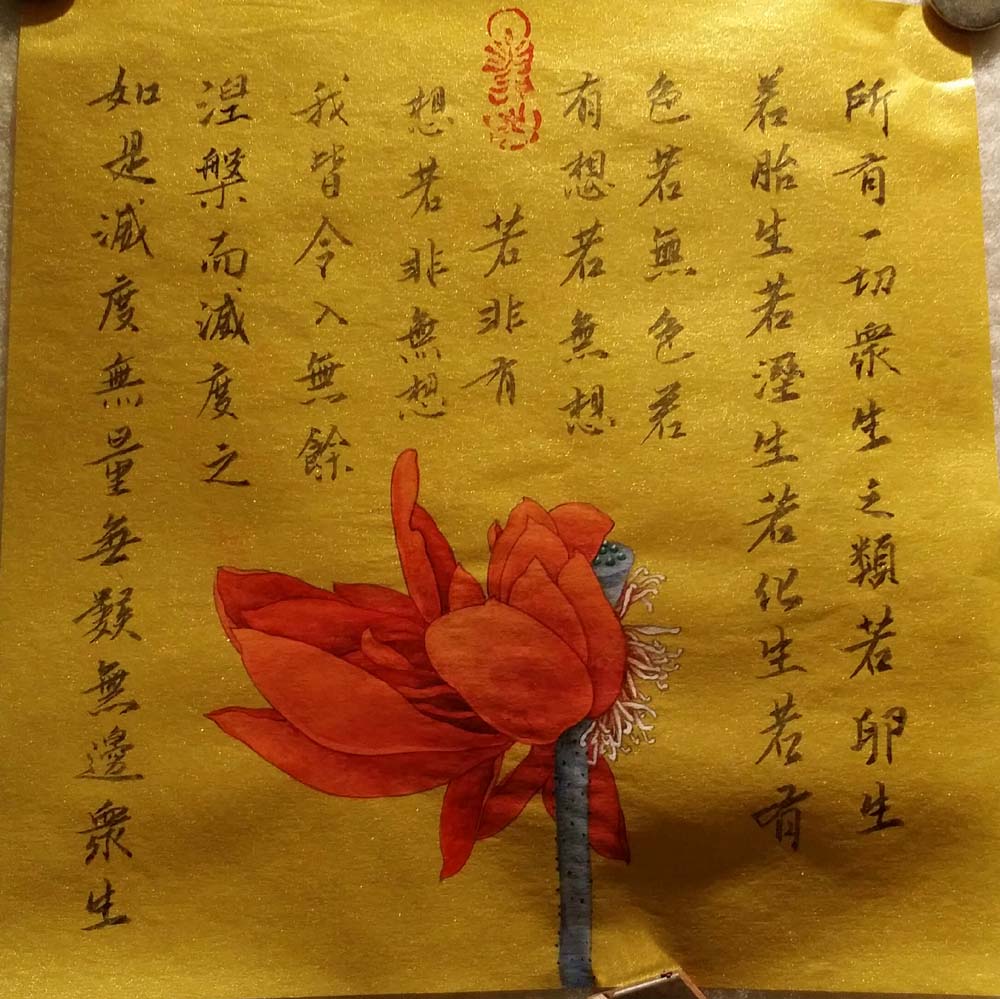 所有一切衆生之類若卵生
若胎生若溼生若化生若有
色若無色若
有想若無想
若非有
想若非無想
我皆令入無餘
涅槃而滅度之
如是滅度無量無數無邊衆生